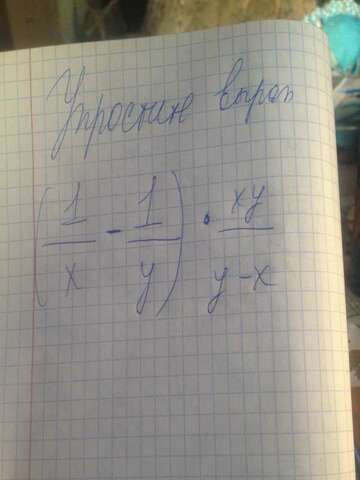 Упростить выраж
(1/x - 1/y) · xy/y-x